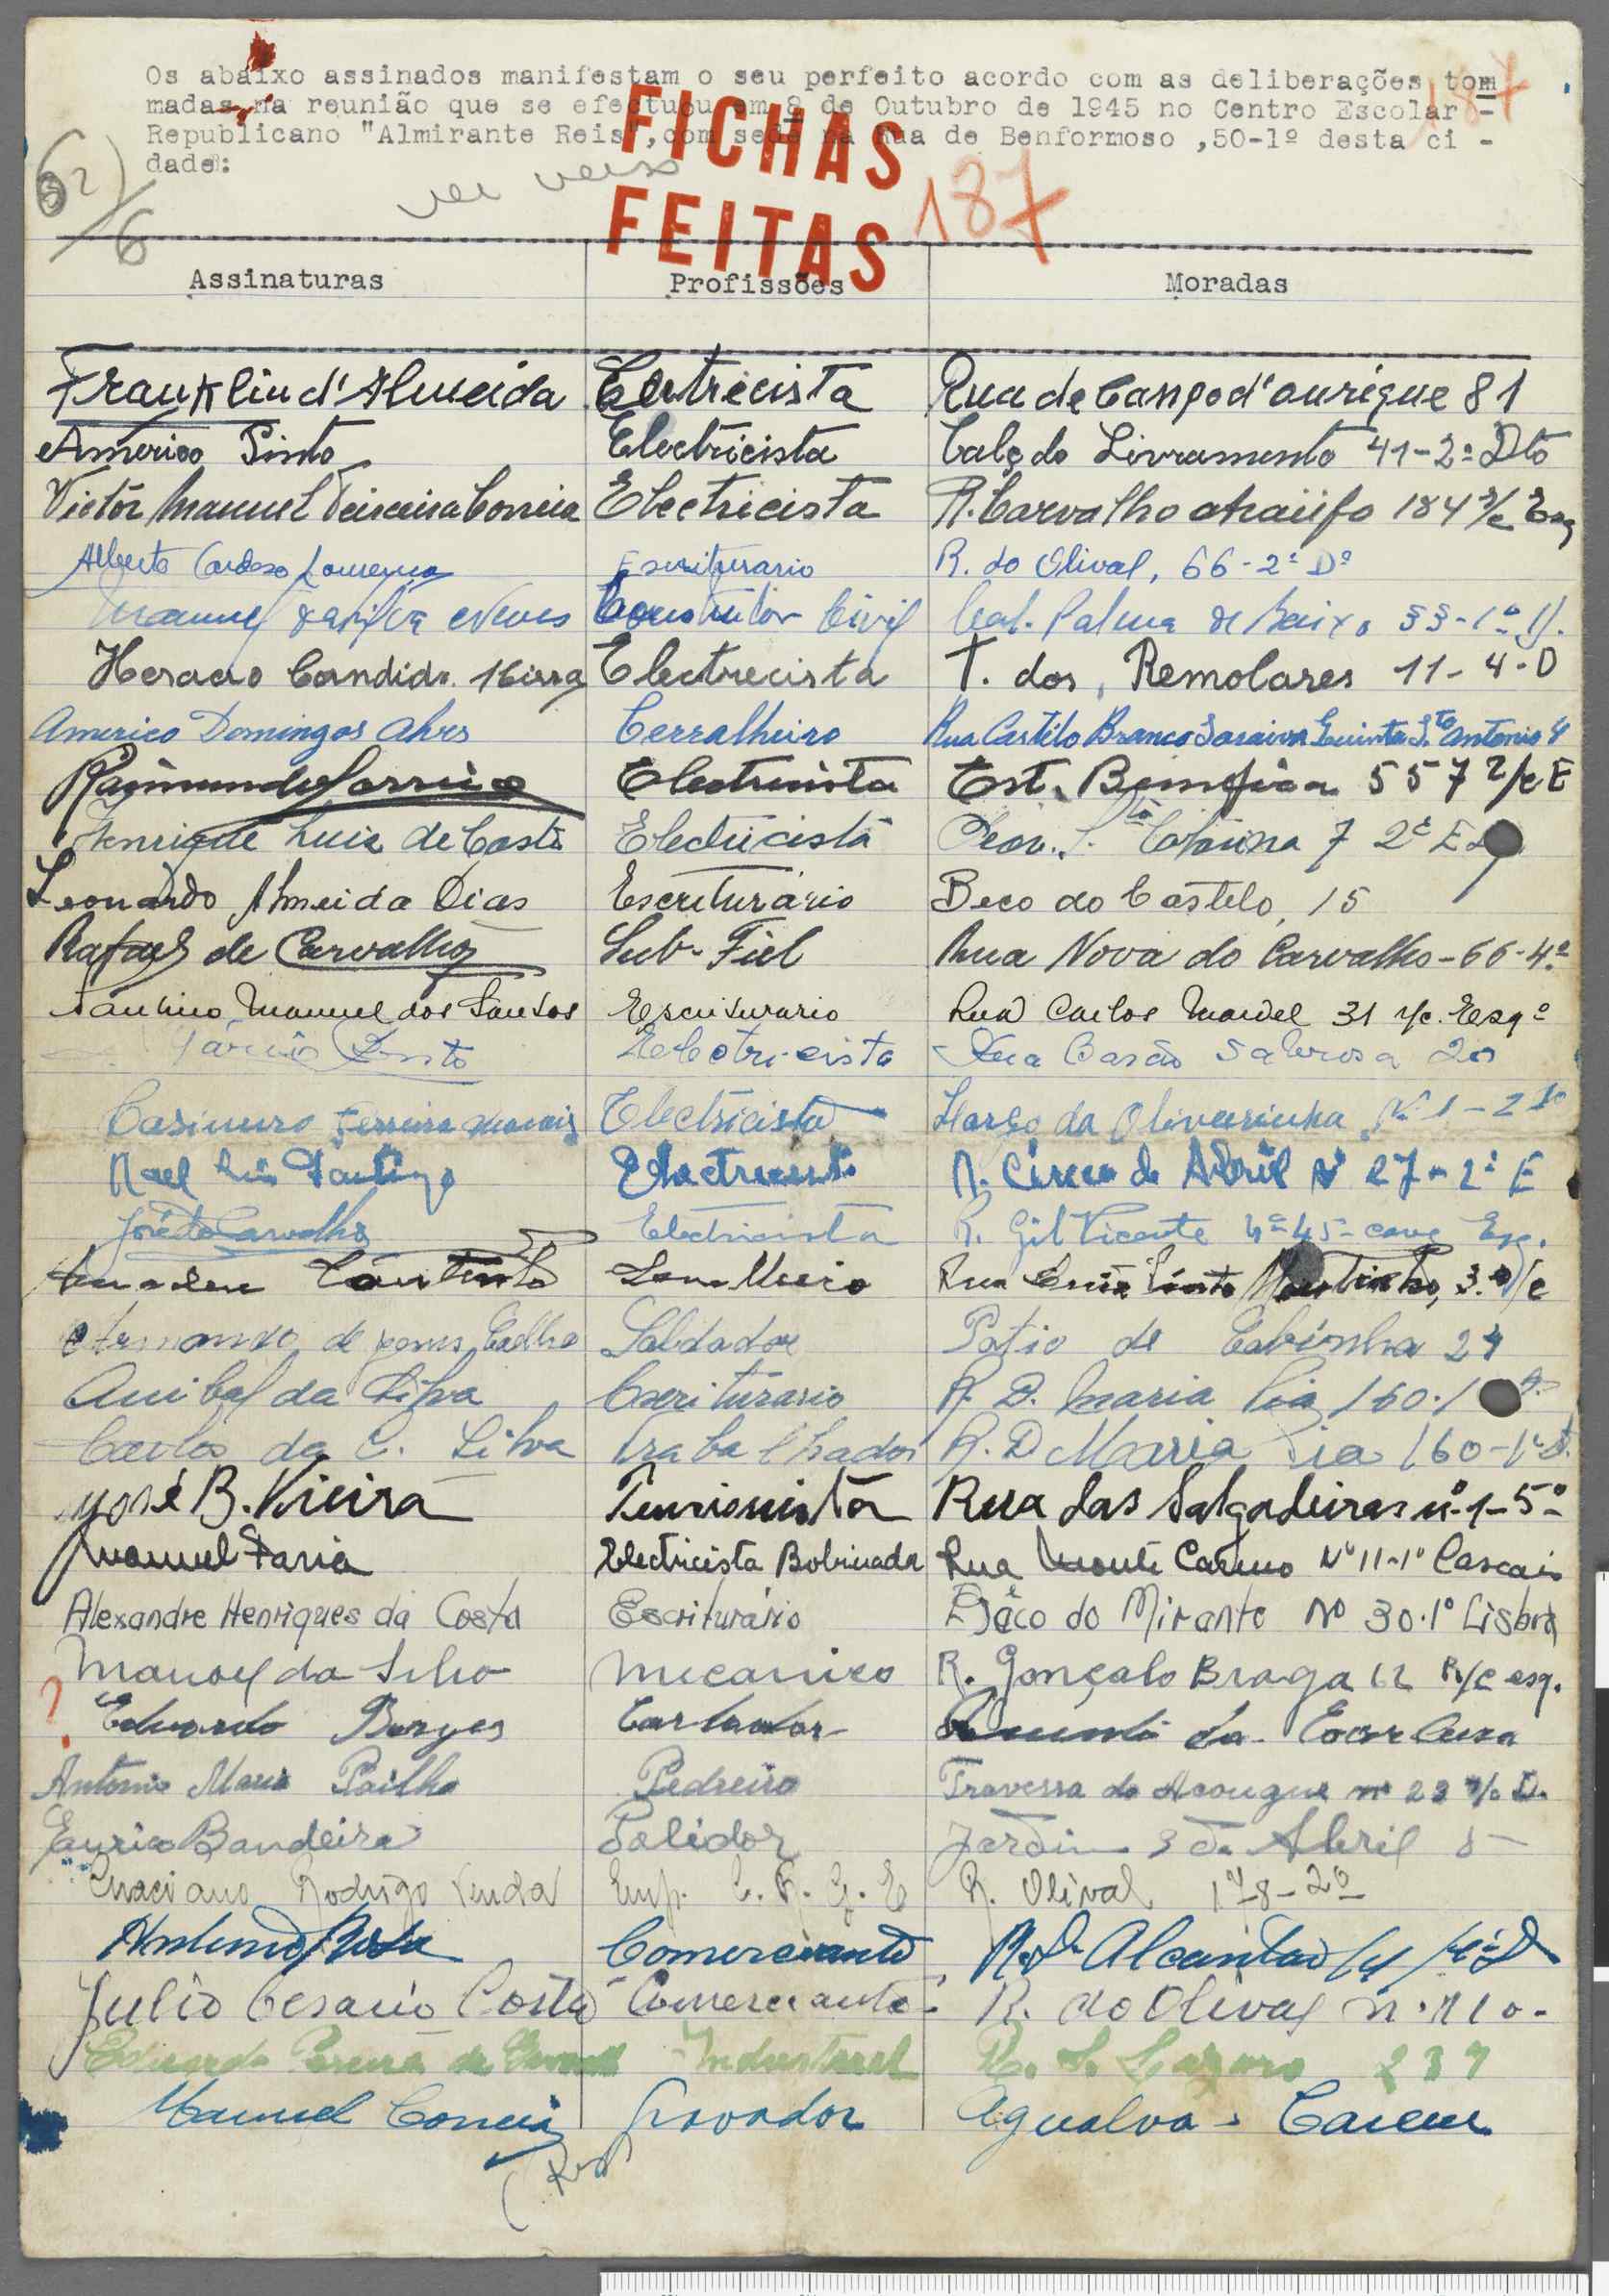 Os abaixo assinados manifestam o seu perfeito acordo com as deliberações tom
madas na reunião que se efectuou em 8 de Outubro de 1945 no Centro Escolar -
Republicano "Almirante Reis", com sede na Rua de Benformoso ,50-1º desta ci -
dade:
FICHAS
FEITAS
187
187
62)/6
ver verso
Assinaturas Profissões Moradas
Franklin d'Almeida Eletrecista Rua de Campo d'ourique 81
Americo Pinto Electricista Calç do Livramento 41-2º Dto
Victór Manuel Teixeira Correia Electricista R. Carvalho Araújo 184 r/c Esq
Alberto Cardoso Lourenço Escriturario R. do Olival, 66-2º Dº
Manuel da Silva Neves Construtor Civil Palma de Baixo 33-1º D.
Candido Electrecista T. dos Remolares 11-4-D
Americo Domingos Alves Cerralheiro Rua Castilo Branco Saraiva Quinta S.to Antonio 4
Raimundo Electricista Est. Bemfica 557 r/c E
Henrique Luis de Costa Electricista 7 2º
Leonardo Almeida Dias Escriturário Beco do Castelo, 15
Rafael de Carvalho Sub-Fiel Rua Nova do Carvalho-66-4.º
Paulino Manuel dos Santos Escriturario Rua Carlos Mardel 31 r/c. Esqº
Pinto Electricista Rua Barão Sabrosa 20
Casimiro Ferreira Morais Electricista Largo da Oliveirinha Nº 1-2º
Luis Santiago R. Cinco de Abril Nº 27-2º E
José de Carvalho Electricista R. Gil Vicente nº 45-cave Esq.
Serralheiro Rua Pinto Moutinho, 3. r/c
Armando de Coelho Soldador Patio de 24
Anibal da Silva Escriturario R. D. Maria Pia 160.1
Carlos da C. Silva trabalhador R. D Maria Pia 160-1º D.
José B. Vieira Pensionista Rua das Salgadeiras nº 1-5º
Manuel Faria Electricista Bobinador Rua Monte Carmo Nº 11-1º Cascais
Alexandre Henriques da Costa Escriturário Bêco do Mirante Nº 30.1º Lisboa
Manoel da Silva Mecanico R. Gonçalo Braga 12 R/c esq.
? Eduardo Borges da
Antonio Maria Pailho Pedreiro Travessa do Açougue nº 23 r/c D.
Eurico Bandeira Polidor Jardim 9 de Abril 5
Graciano Rodrigo Venda Emp. C. R. G. E R. Olival 178-2º
Comerciante Alcantara
Julio Cesario Costa Comerciante R. do Olival n. 110-
Eduardo Pereira de Industrial R. S. Lazaro 237
Manuel Correia Gravador Agualva - Cacem